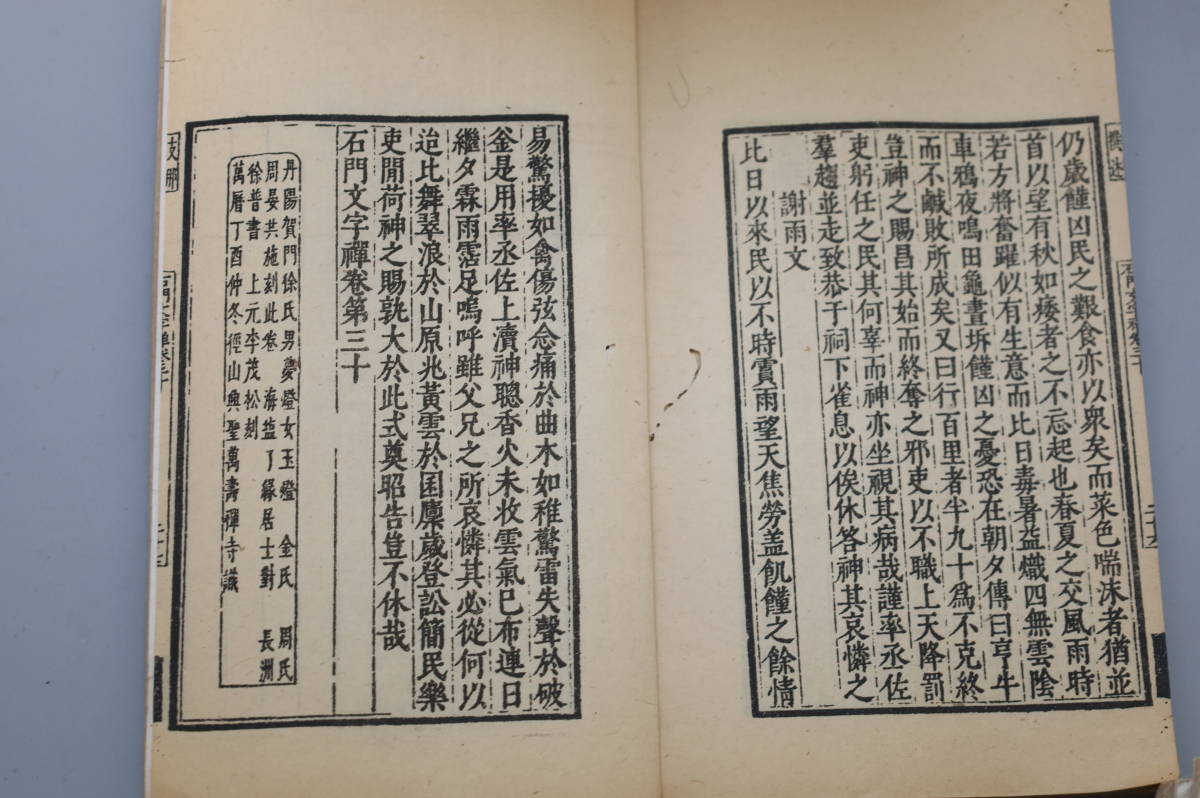 仍歲饉凶民之艱食亦以衆矣而菜色喘沫者猶並
首以望有秋如痿者之不忘起也春夏之交風雨時
若方將奮躍似有生意而比日毒暑益熾四無雲陰
車鴉夜鳴田龜晝坼饉凶之憂恐在朝夕傳曰亨牛
而不鹹敗所成矣又曰行百里者半九十為不克終
豈神之賜昌其始而終奪之邪吏以不職上天降罰
吏躬任之民其何辜而神亦坐視其病哉謹率丞佐
羣趨並走致恭于祠下雀息以俟休答神其哀憐之
謝雨文
比日以來民以不時賣雨望天焦勞盖飢饉之餘情
易驚擾如禽傷弦念痛於曲木如稚驚雷失聲於破
釜是用率丞佐上瀆神聰香火未收雲氣已布連日
繼夕霖雨霑足嗚呼雖父兄之所哀憐其必從何以
迨比舞翠浪於山原兆黃雲於囷廩歲登訟簡民樂
吏閒荷神之賜孰大於此式奠昭告豈不休哉
石門文字禪卷第三十
丹陽賀門徐氏男夢燈女玉燈 金氏 周氏
周晏共施刻此卷 海盐了緣居士對 長洲
徐普書 上元李茂松刻
萬曆丁酉仲冬徑山興聖萬壽禪寺識
支那